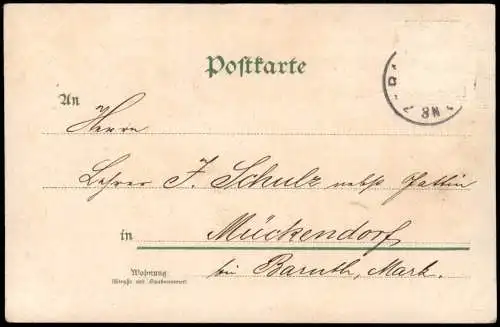 Postkarte
An
Herrn
Lehrer F. Schulz nebst Gattin
in Mückendorf
bei Baruth, Mark.
Wohnung
(Straße und Hausnummer)